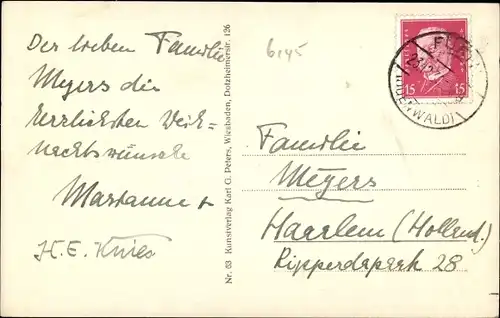 Der lieben Familie
Meyers die
herzlichsten Weih=
nachtswünsche
Marianne +
H.E. Knies
Nr. 83 Kunstverlag Karl G. Peters, Wiesbaden, Dotzheimerstr. 126
6145
15 15
ODENWALD)
Familie
Meyers
Haarlem (Holland.)
Ripperdapark 28